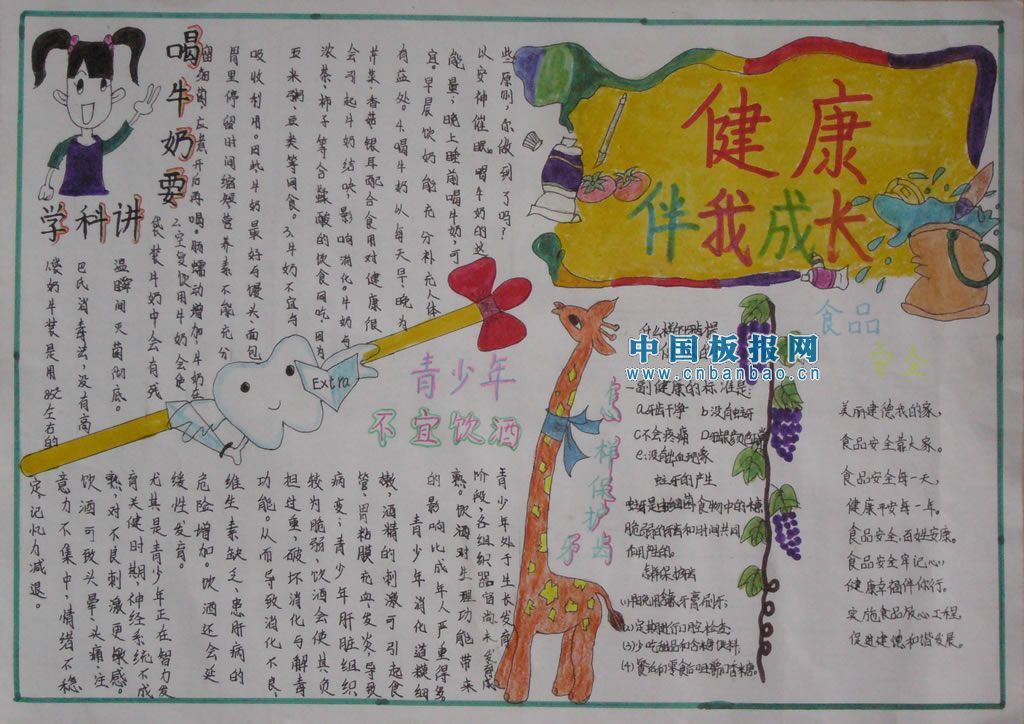 健康
伴我成长
喝牛奶要
学科讲
巴氏消毒法，没有高
温瞬间灭菌彻底。
袋装牛奶中会有残
细菌应煮开后再喝。
2.空复饮用牛奶会使
肠蠕动增加，牛奶在
胃里停留时间缩短营养素不能充分
吸收利用。因此牛奶最好与馒头面包
玉米粥、豆类等同食。3.牛奶不宜与
浓茶、柿子等含鞣酸的饮食同吃，因为
会引起牛奶结块，影响消化。牛奶与
芹菜、香菇、银耳配合食用对健康很
有益处。4.喝牛奶从每天早、晚为
宜。早晨饮奶能充分补充人体
能量，晚上睡前喝牛奶，可
以安神催眠。喝牛奶的这
些原则，你做到了吗？
Extra
青少年
不宜饮酒
青少年处于生长发育
阶段，各组织器官尚未发育成
熟。饮酒对生理功能带来
的影响比成年人严重得多
青少年消化道稚细
嫩，酒精的刺激可引起食
管、胃粘膜充血、发炎，导致
病变；青少年肝脏组织
较为脆弱，饮酒会使其负
担过重，破坏消化与解毒
功能。从而导致消化不良、
维生素缺乏，患肝病的
危险增加。饮酒还会延
缓性发育。
尤其是青少年正在智力发
育关键时期，神经系统不成
熟，对不良刺激更敏感。
饮酒可致头晕、头痛、注
意力不集中，情绪不稳
定、记忆力减退。
怎样保护牙齿
中国板报网
www.cnbanbao.cn
一副健康的标准是：
a.牙齿干净 b.没有蛀牙
c.不会疼痛
e.没有出血现象
蛀牙的产生
食物中的糖
和时间共同
作用产生的。
怎样保护
(2)定期进行口腔检查
食品
安全
美丽建德我的家，
食品安全靠大家。
食品安全每一天，
健康平安每一年。
食品安全，百姓安康。
食品安全牢记心，
健康幸福伴你行。
实施食品放心工程
促进建德和谐发展。